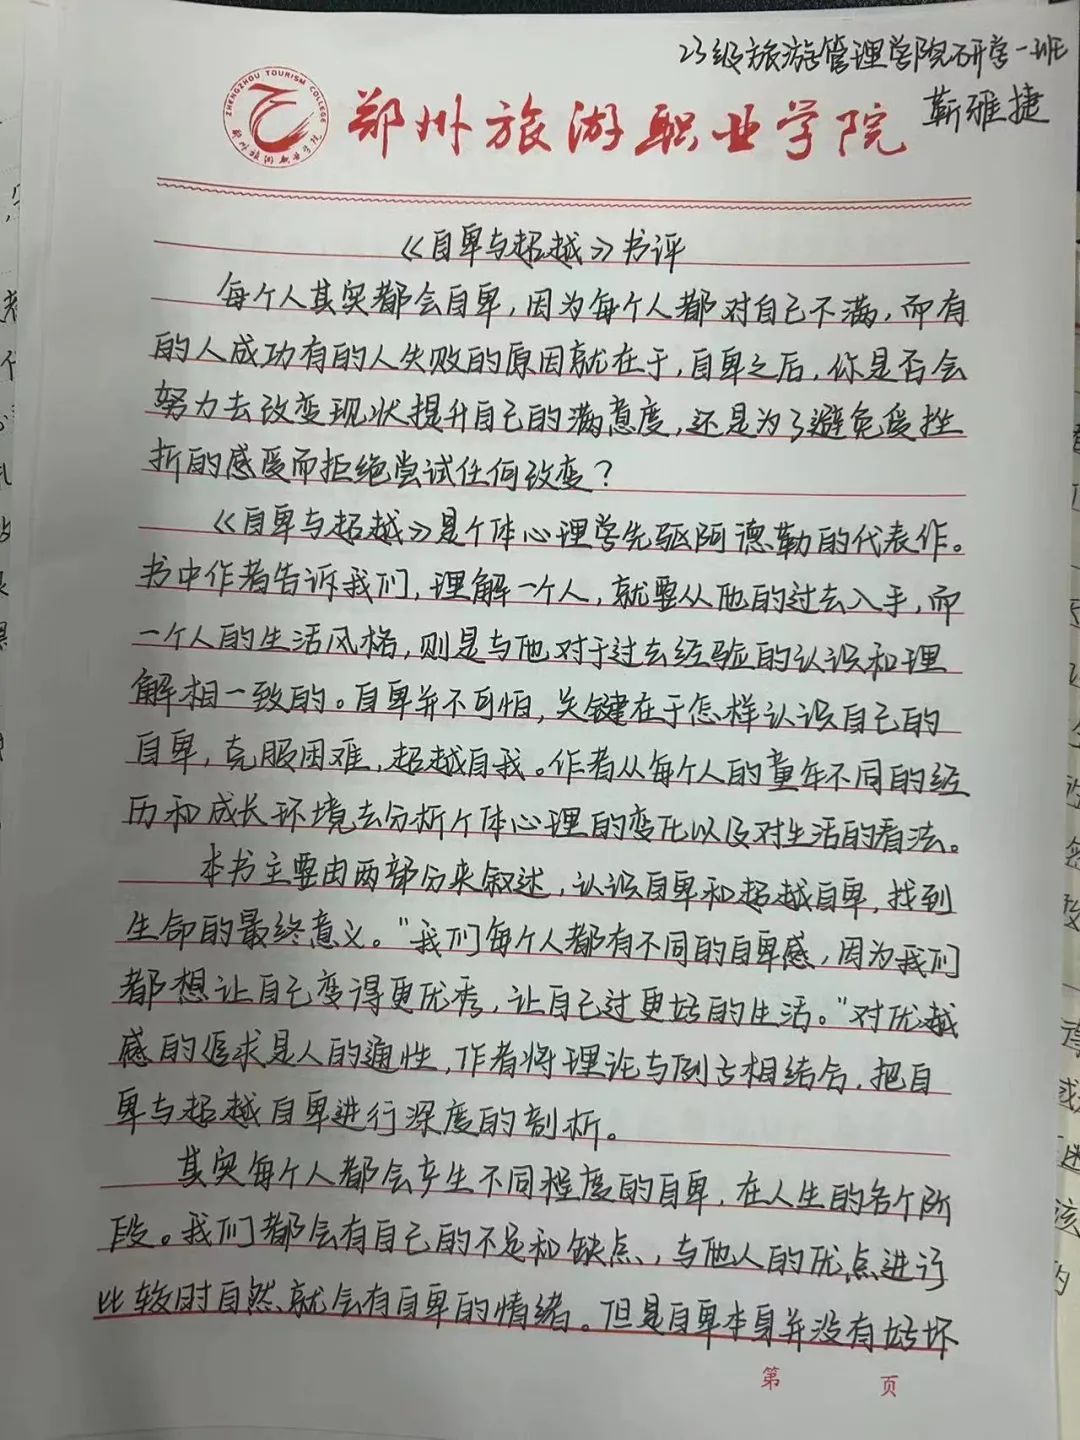 23级旅游管理学院研学一班
靳雅捷
ZHENGZHOU TOURISM COLLEGE
郑州旅游职业学院
郑州旅游职业学院
《自卑与超越》书评
每个人其实都会自卑,因为每个人都对自己不满,而有
的人成功有的人失败的原因就在于,自卑之后,你是否会
努力去改变现状提升自己的满意度,还是为了避免受挫
折的感受而拒绝尝试任何改变?
《自卑与超越》是个体心理学先驱阿德勒的代表作。
书中作者告诉我们,理解一个人,就要从他的过去入手,而
一个人的生活风格,则是与他对于过去经验的认识和理
解相一致的。自卑并不可怕,关键在于怎样认识自己的
自卑,克服困难,超越自我。作者从每个人的童年不同的经
历和成长环境去分析个体心理的变化以及对生活的看法。
本书主要由两部分来叙述,认识自卑和超越自卑,找到
生命的最终意义。"我们每个人都有不同的自卑感,因为我们
都想让自己变得更优秀,让自己过更好的生活。"对优越
感的追求是人的通性,作者将理论与例子相结合,把自
卑与超越自卑进行深度的剖析。
其实每个人都会产生不同程度的自卑,在人生的各个阶
段。我们都会有自己的不足和缺点,与他人的优点进行
比较时自然就会有自卑的情绪。但是自卑本身并没有好坏
第 页